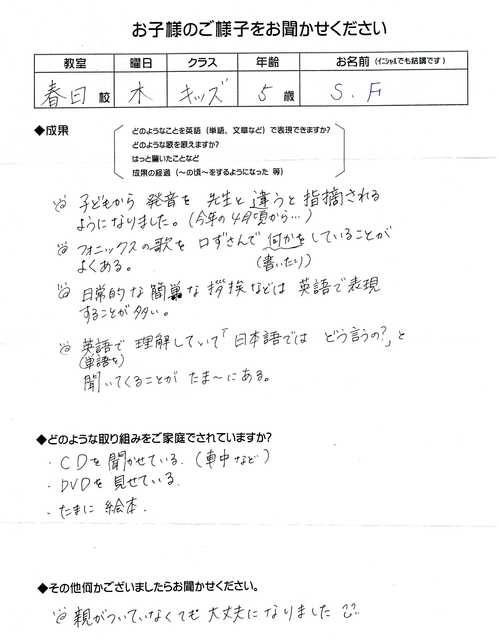 お子様のご様子をお聞かせください
教室 曜日 クラス 年齢 お名前 (イニシャルでも結構です)
春日 校 木 キッズ 5 歳 S.F
◆成果
どのようなことを英語 (単語、文章など) で表現できますか?
どのような歌を歌えますか?
はっと驚いたことなど
成果の経過 (〜の頃〜をするようになった 等)
子どもから 発音を 先生と 違うと 指摘される
ようになりました。(今年の4月頃から…)
フォニックスの歌を 口ずさんで 何かをしていることが
よくある。 (書いたり)
日常的な 簡単な 挨拶などは 英語で 表現
することが 多い。
英語で 理解していて「日本語では どう言うの?」と
(単語を)
聞いてくることが たま〜にある。
◆どのような取り組みをご家庭でされていますか?
・CDを 聞かせている. (車中など)
・DVDを 見せている.
・たまに 絵本.
◆その他何かございましたらお聞かせください。
親がついていなくても 大丈夫に なりました